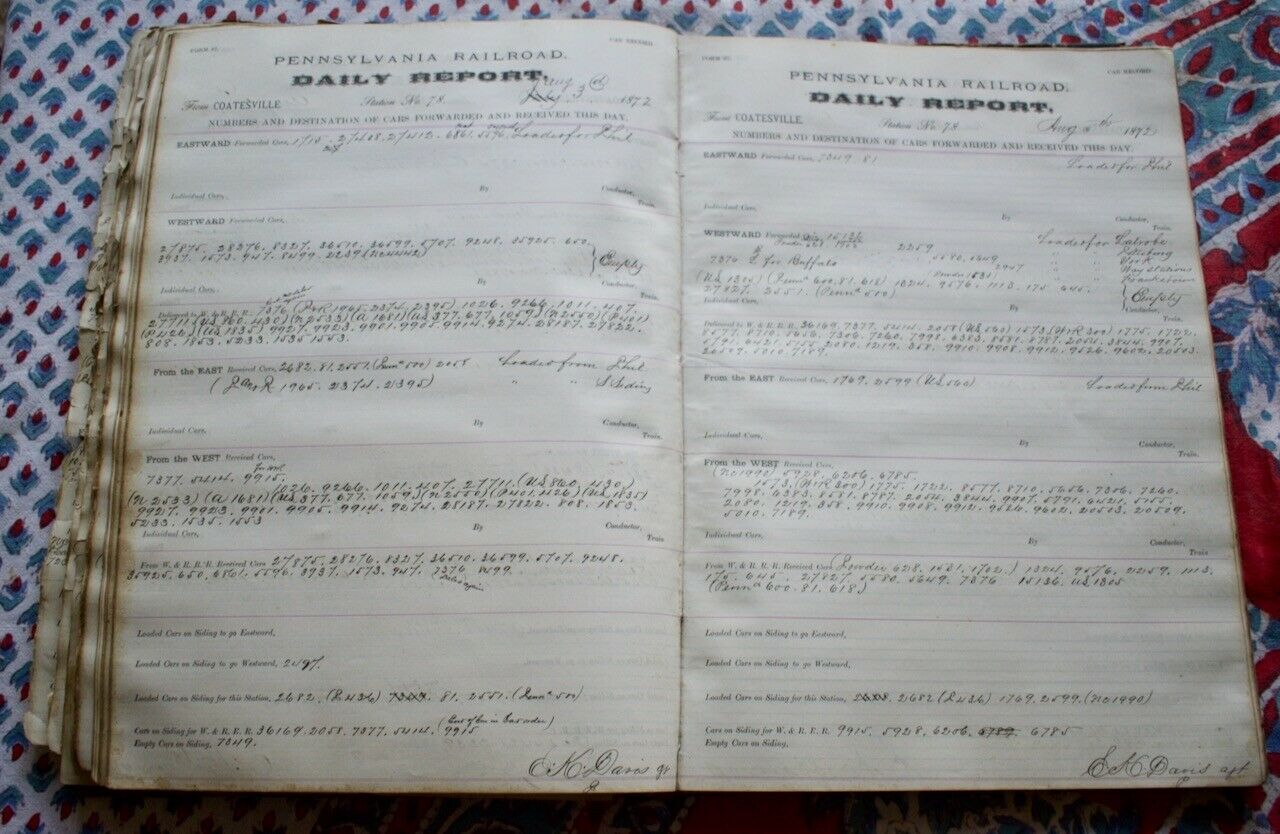 FORM 87.
CAR RECORD.
PENNSYLVANIA RAILROAD.
DAILY REPORT.
From COATESVILLE Station No. 78 Aug 3d 1872
NUMBERS AND DESTINATION OF CARS FORWARDED AND RECEIVED THIS DAY.
EASTWARD Forwarded Cars, 27408. 27412. 5596 Loads for Phil
By Conductor,
Individual Cars, Train.
WESTWARD Forwarded Cars,
27875. 28276. 8327. 36510. 36599. 5707. 9248. 35925. 650.
3937. 1573. 947. 8499. 2239 } Empty
Individual Cars,
Delivered to W. & R. R. R. 7376 (P&R 1965. 2374. 2395). 1026. 9266. 1011. 407.
27711 (US 860. 430) (N 2533) (A 1681) (US 377. 677. 1059) (N 2550) (P401)
(US 1835) 9927. 9923. 9901. 9905. 9914. 9274. 28187. 27822.
808. 1853. 5233. 1535. 1553.
From the EAST Received Cars, 2682. 81. 2551. (Penna 500) 2058 Loads from Phil
1965. 2374. 2395) " " Siding
By Conductor,
Individual Cars, Train.
From the WEST Received Cars,
7377. 5414. 9915.
1026. 9266. 1011. 407. 27711. (US 860. 430)
(N 2533) (A 1681) (US 377. 677. 1059) (N 2550) (P401. 426) (US 1835)
9927. 9923. 9901. 9905. 9914. 9274. 28187. 27822. 808. 1853.
5233. 1535. 1553
By Conductor,
Individual Cars, Train
From W. & R. R. R. Received Cars 27875. 28276. 8327. 36510. 36599. 5707. 9248.
35925. 650. 6861. 5596. 3937. 1573. 947. 7376 8499.
Loaded Cars on Siding to go Eastward,
Loaded Cars on Siding to go Westward, 2497.
Loaded Cars on Siding for this Station, 2682. (P436) 81. 2551. (Penna 500)
Cars on Siding for W. & R. R. R. 36169. 2058. 7377. 5414. 9915
Empty Cars on Siding, 7049.
E. K. Davis
FORM 87.
CAR RECORD.
PENNSYLVANIA RAILROAD.
DAILY REPORT.
From COATESVILLE Station No. 78 Aug 1872
NUMBERS AND DESTINATION OF CARS FORWARDED AND RECEIVED THIS DAY.
EASTWARD Forwarded Cars, 7049. 81 Loads for Phil
Individual Cars,
By Conductor,
Train.
WESTWARD Forwarded 15136 Loads for Latrobe
2259 " " Pittsburg
7376 E for Buffalo 5580. 5649 " " York
2947 " " Way stations
(US 1305) (Penna 600. 81. 618) 1324. 9576. 1113. 175. 645.
27827. 2551. (Penna 500) } Empty
Individual Cars,
Delivered to W. & R. R. R. 36169. 7377. 5414. 2058 (US 560) 1573 (P&R 300) 1775. 1722.
8577. 8710. 5656. 7306. 7260. 7998. 6383. 8581. 8787. 2054. 3844. 9907.
5791. 6421. 5155. 2080. 1219. 358. 9910. 9908. 9912. 9526. 9602. 20503.
20509. 5010. 7189.
From the EAST Received Cars, 1769. 2599 (US 560) Loads from Phil
By Conductor,
Individual Cars, Train.
From the WEST Received Cars,
(NC 1990) 5928. 6206. 6785.
1573. (P&R 300) 1775. 1722. 8577. 8710. 5656. 7306. 7260.
7998. 6383. 8581. 8787. 2054. 3844. 9907. 5791. 6421. 5155.
2080. 1219. 358. 9910. 9908. 9912. 9526. 9602. 20503. 20509.
5010. 7189.
By Conductor,
Individual Cars, Train
From W. & R. R. R. Received Cars 1324. 9576. 2259. 1113.
175. 645. 27827. 5580. 5649. 7376 15136. US 1305
(Penna 600. 81. 618.)
Loaded Cars on Siding to go Eastward,
Loaded Cars on Siding to go Westward,
Loaded Cars on Siding for this Station, 2682 (P436) 1769. 2599. (NC 1990)
Cars on Siding for W. & R. R. R. 9915. 5928. 6206. 6785
Empty Cars on Siding,
E K Davis agt